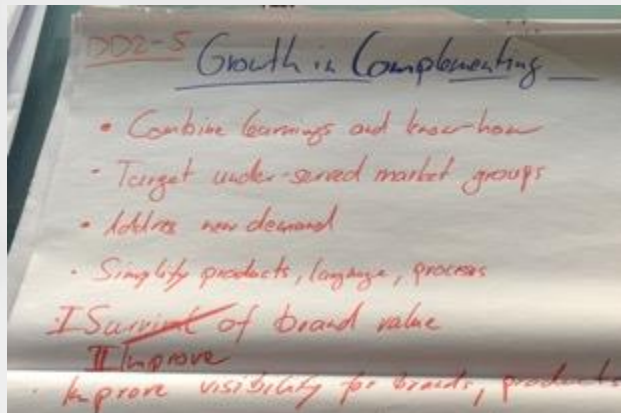 DD2-5 Growth in Complementing
• Combine learnings and know-how
- Target under-served market groups
• Addres new demand
• Simplify products, language, process
I Survival of brand value
II Improve
• Improve visibility for brands, products